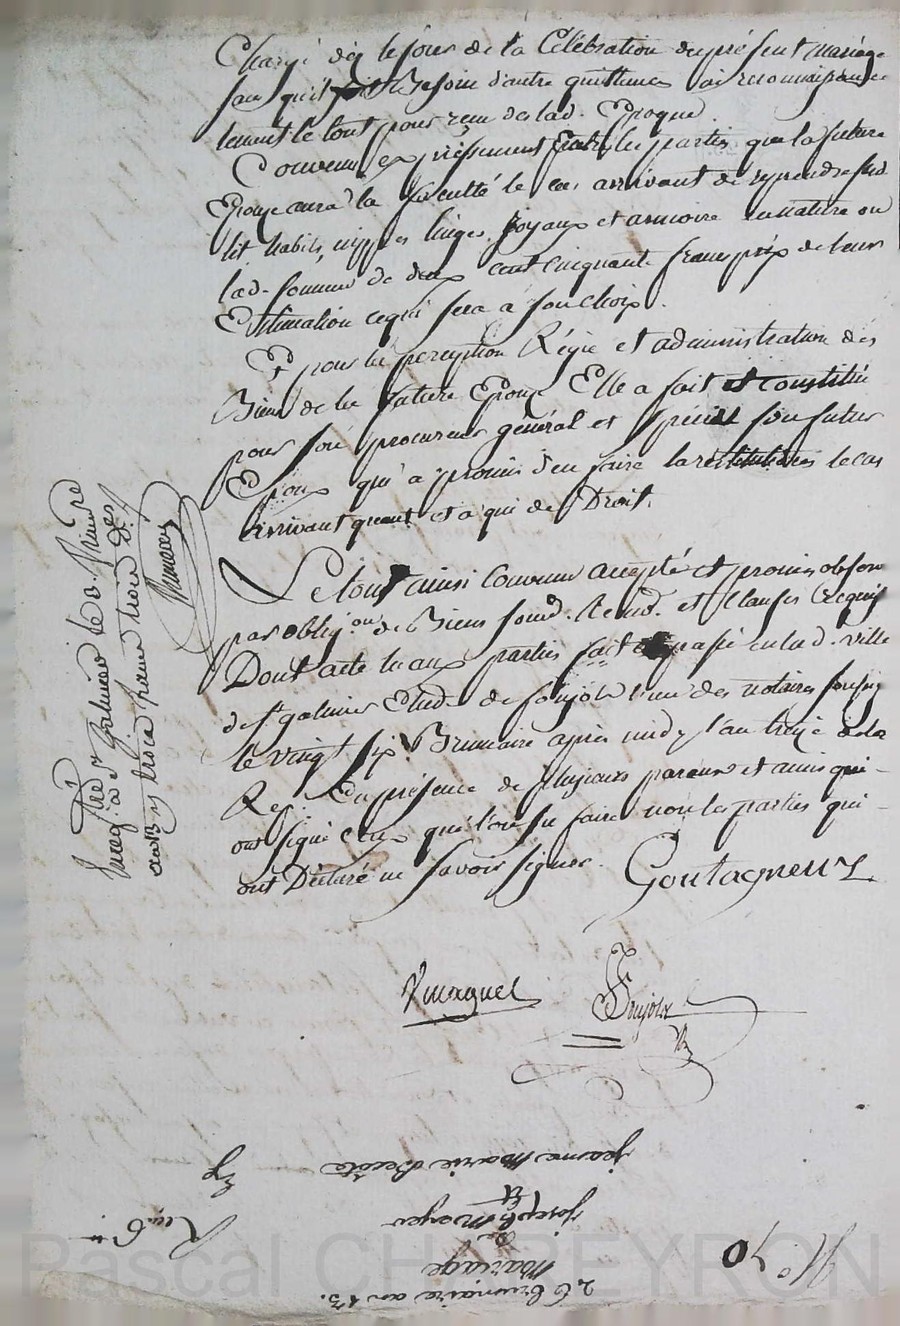 Chargé dès le jour de la Célébration du présent mariage
sans qu'il soit Besoin d'autre quittance ni reconnaissance
le tout pour                de lad. Epoque.
Convenu expréssement Entre les parties que la future
Epouse aura la faculté le cas arrivant de reprendre sesd.
lit habits, nippes linges, joyaux et armoire en nature ou
lad. somme de deux cent cinquante francs prix de leur
Estimation ce qui sera à son choix.
Et pour la perception Régie et administration des
Biens de la future Epouse Elle a fait et constitué
pour son procureur général et spécial son futur
Epoux qui a promis d'en faire la restitution le cas
arrivant quant et a qui de Droit.
Le tout ainsi convenu accepté et promis observer
par oblig.on de Biens soum. renonc. et Clauses requises
Dont acte lu aux parties fait et passé en lad. ville
de St galmier Etude de Soujols l'un des notaires soussig
le vingt six Brumaire après midy l'an treize de la
Rep. En présence de plusieurs parens et amis qui
ont signé ceux qui l'ont su faire non les parties qui
ont Déclaré ne savoir signer.
Goutagneux
Vmagnet
Soujols
Enreg. à St Galmier le 3. frimaire
an 13
trois francs
26 brumaire an 13.
Mariage
de
Joseph Moyer
Et
Jeanne Marie
No. 70
Pascal CHAREYRON